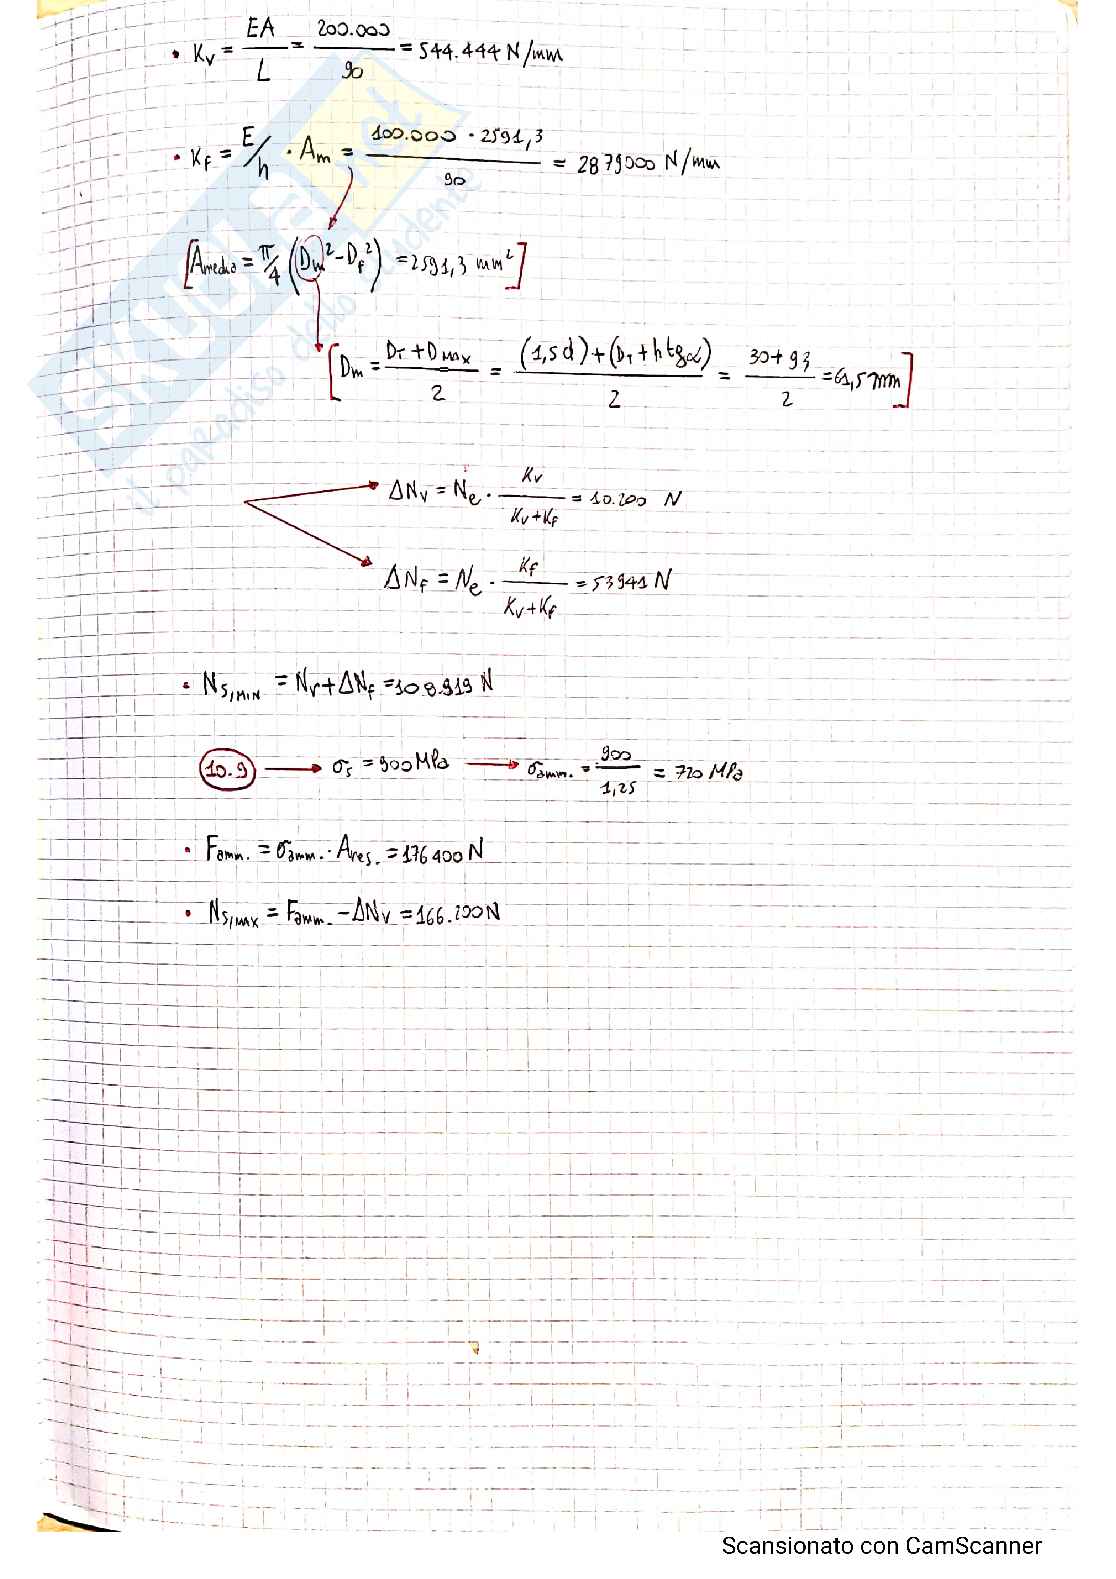 • Kv = EA / L = 200.000 / 90 = 544.444 N/mm
• Kf = E/h · Am = 100.000 · 2591,3 / 90 = 2879000 N/mm
[Amedio = π/4 (Dm² - Df²) = 2591,3 mm²]
[Dm = DT + DMAX / 2 = (1,5 d) + (DT + h tg α) / 2 = 30 + 93 / 2 = 61,5 mm]
ΔNv = Ne · Kv / Kv+Kf = 10.200 N
ΔNf = Ne · Kf / Kv+Kf = 53941 N
• Ns,MIN = Nr + ΔNf = 108.919 N
10.9 → σs = 900 MPa → σamm. = 900 / 1,25 = 720 MPa
• Famm. = σamm. · Ares. = 176400 N
• Ns,MAX = Famm. - ΔNv = 166.200 N
SKUOLA.net
il paradiso dello studente
Scansionato con CamScanner